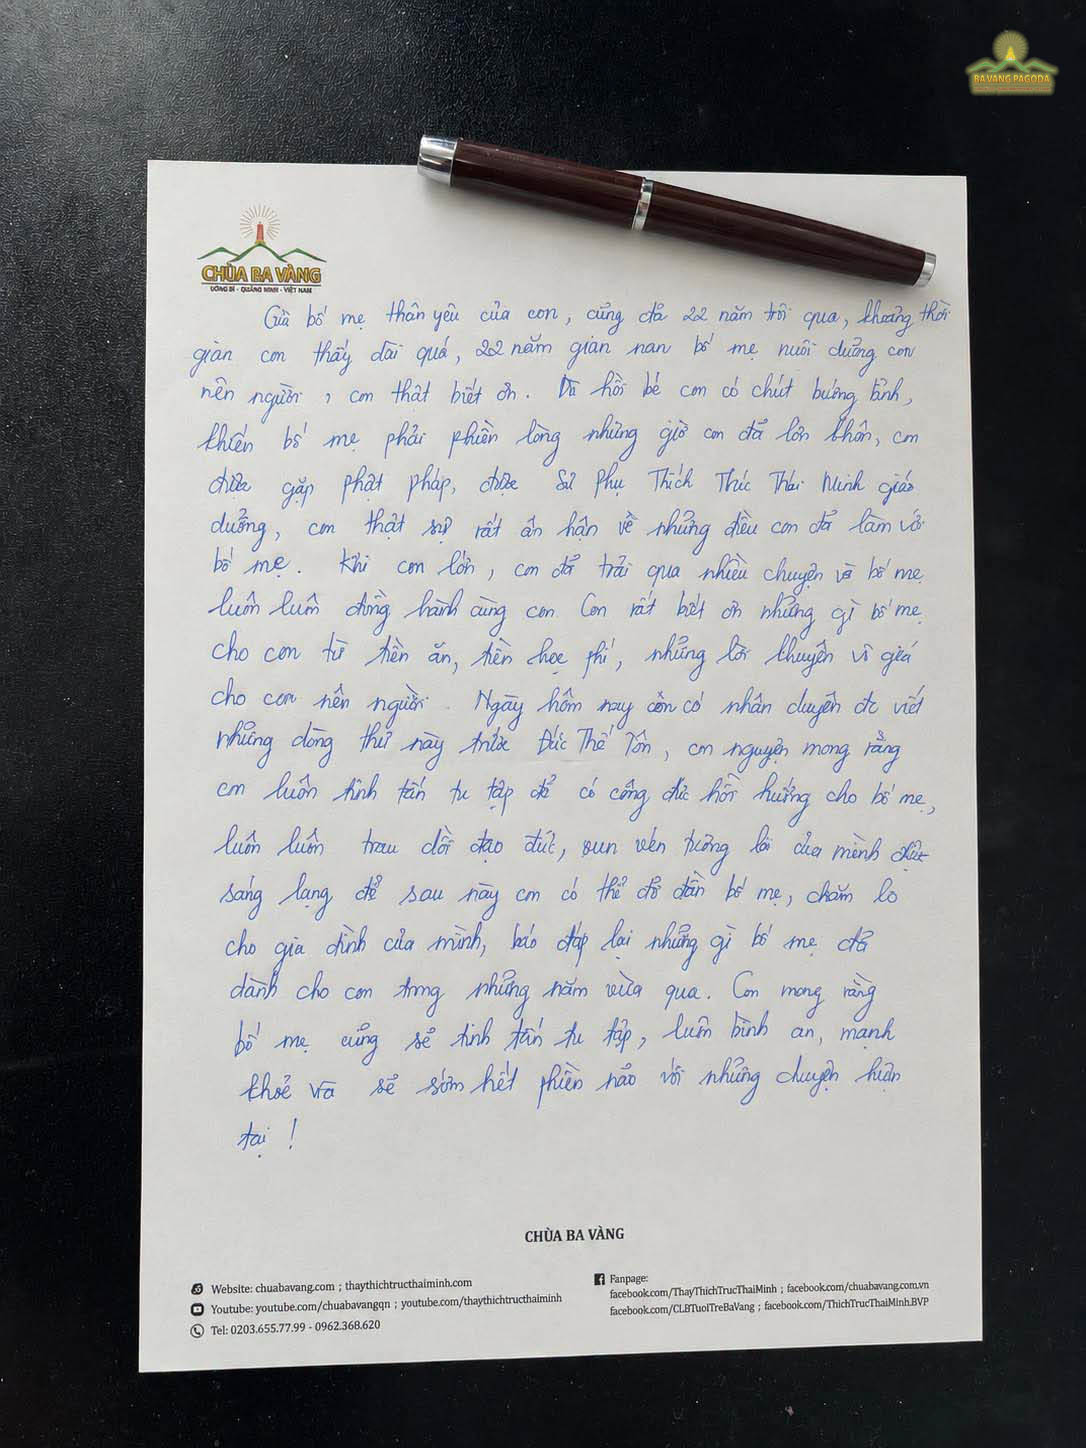 BAVANG PAGODA
CHÙA BA VÀNG
UÔNG BÍ - QUẢNG NINH - VIỆT NAM
Gửi bố mẹ thân yêu của con, cũng đã 22 năm trôi qua, khoảng thời
gian con thấy dài quá, 22 năm gian nan bố mẹ nuôi dưỡng con
nên người, con thật biết ơn. Dù hồi bé con có chút bướng bỉnh,
khiến bố mẹ phải phiền lòng nhưng giờ con đã lớn khôn, con
được gặp phật pháp, được Sư Phụ Thích Trúc Thái Minh giáo
dưỡng, con thật sự rất ân hận về những điều con đã làm với
bố mẹ. Khi con lớn, con đã trải qua nhiều chuyện và bố mẹ
luôn luôn đồng hành cùng con. Con rất biết ơn những gì bố mẹ
cho con từ tiền ăn, tiền học phí, những lời khuyên vô giá
cho con nên người. Ngày hôm nay con có nhân duyên đc viết
những dòng thư này trước Đức Thế Tôn, con nguyện mong rằng
con luôn tinh tấn tu tập để có công đức hồi hướng cho bố mẹ,
luôn luôn trau dồi đạo đức, vun vén tương lai của mình được
sáng lạng để sau này con có thể đỡ đần bố mẹ, chăm lo
cho gia đình của mình, báo đáp lại những gì bố mẹ đã
dành cho con trong những năm vừa qua. Con mong rằng
bố mẹ cũng sẽ tinh tấn tu tập, luôn bình an, mạnh
khoẻ và sẽ sớm hết phiền não với những chuyện hiện
tại !
CHÙA BA VÀNG
Website: chuabavang.com ; thaythichtructhaiminh.com
Youtube: youtube.com/chuabavangqn ; youtube.com/thaythichtructhaiminh
Tel: 0203.655.77.99 - 0962.368.620
Fanpage:
facebook.com/ThayThichTrucThaiMinh ; facebook.com/chuabavang.com.vn
facebook.com/CLBTuoiTreBaVang ; facebook.com/ThichTrucThaiMinh.BVP